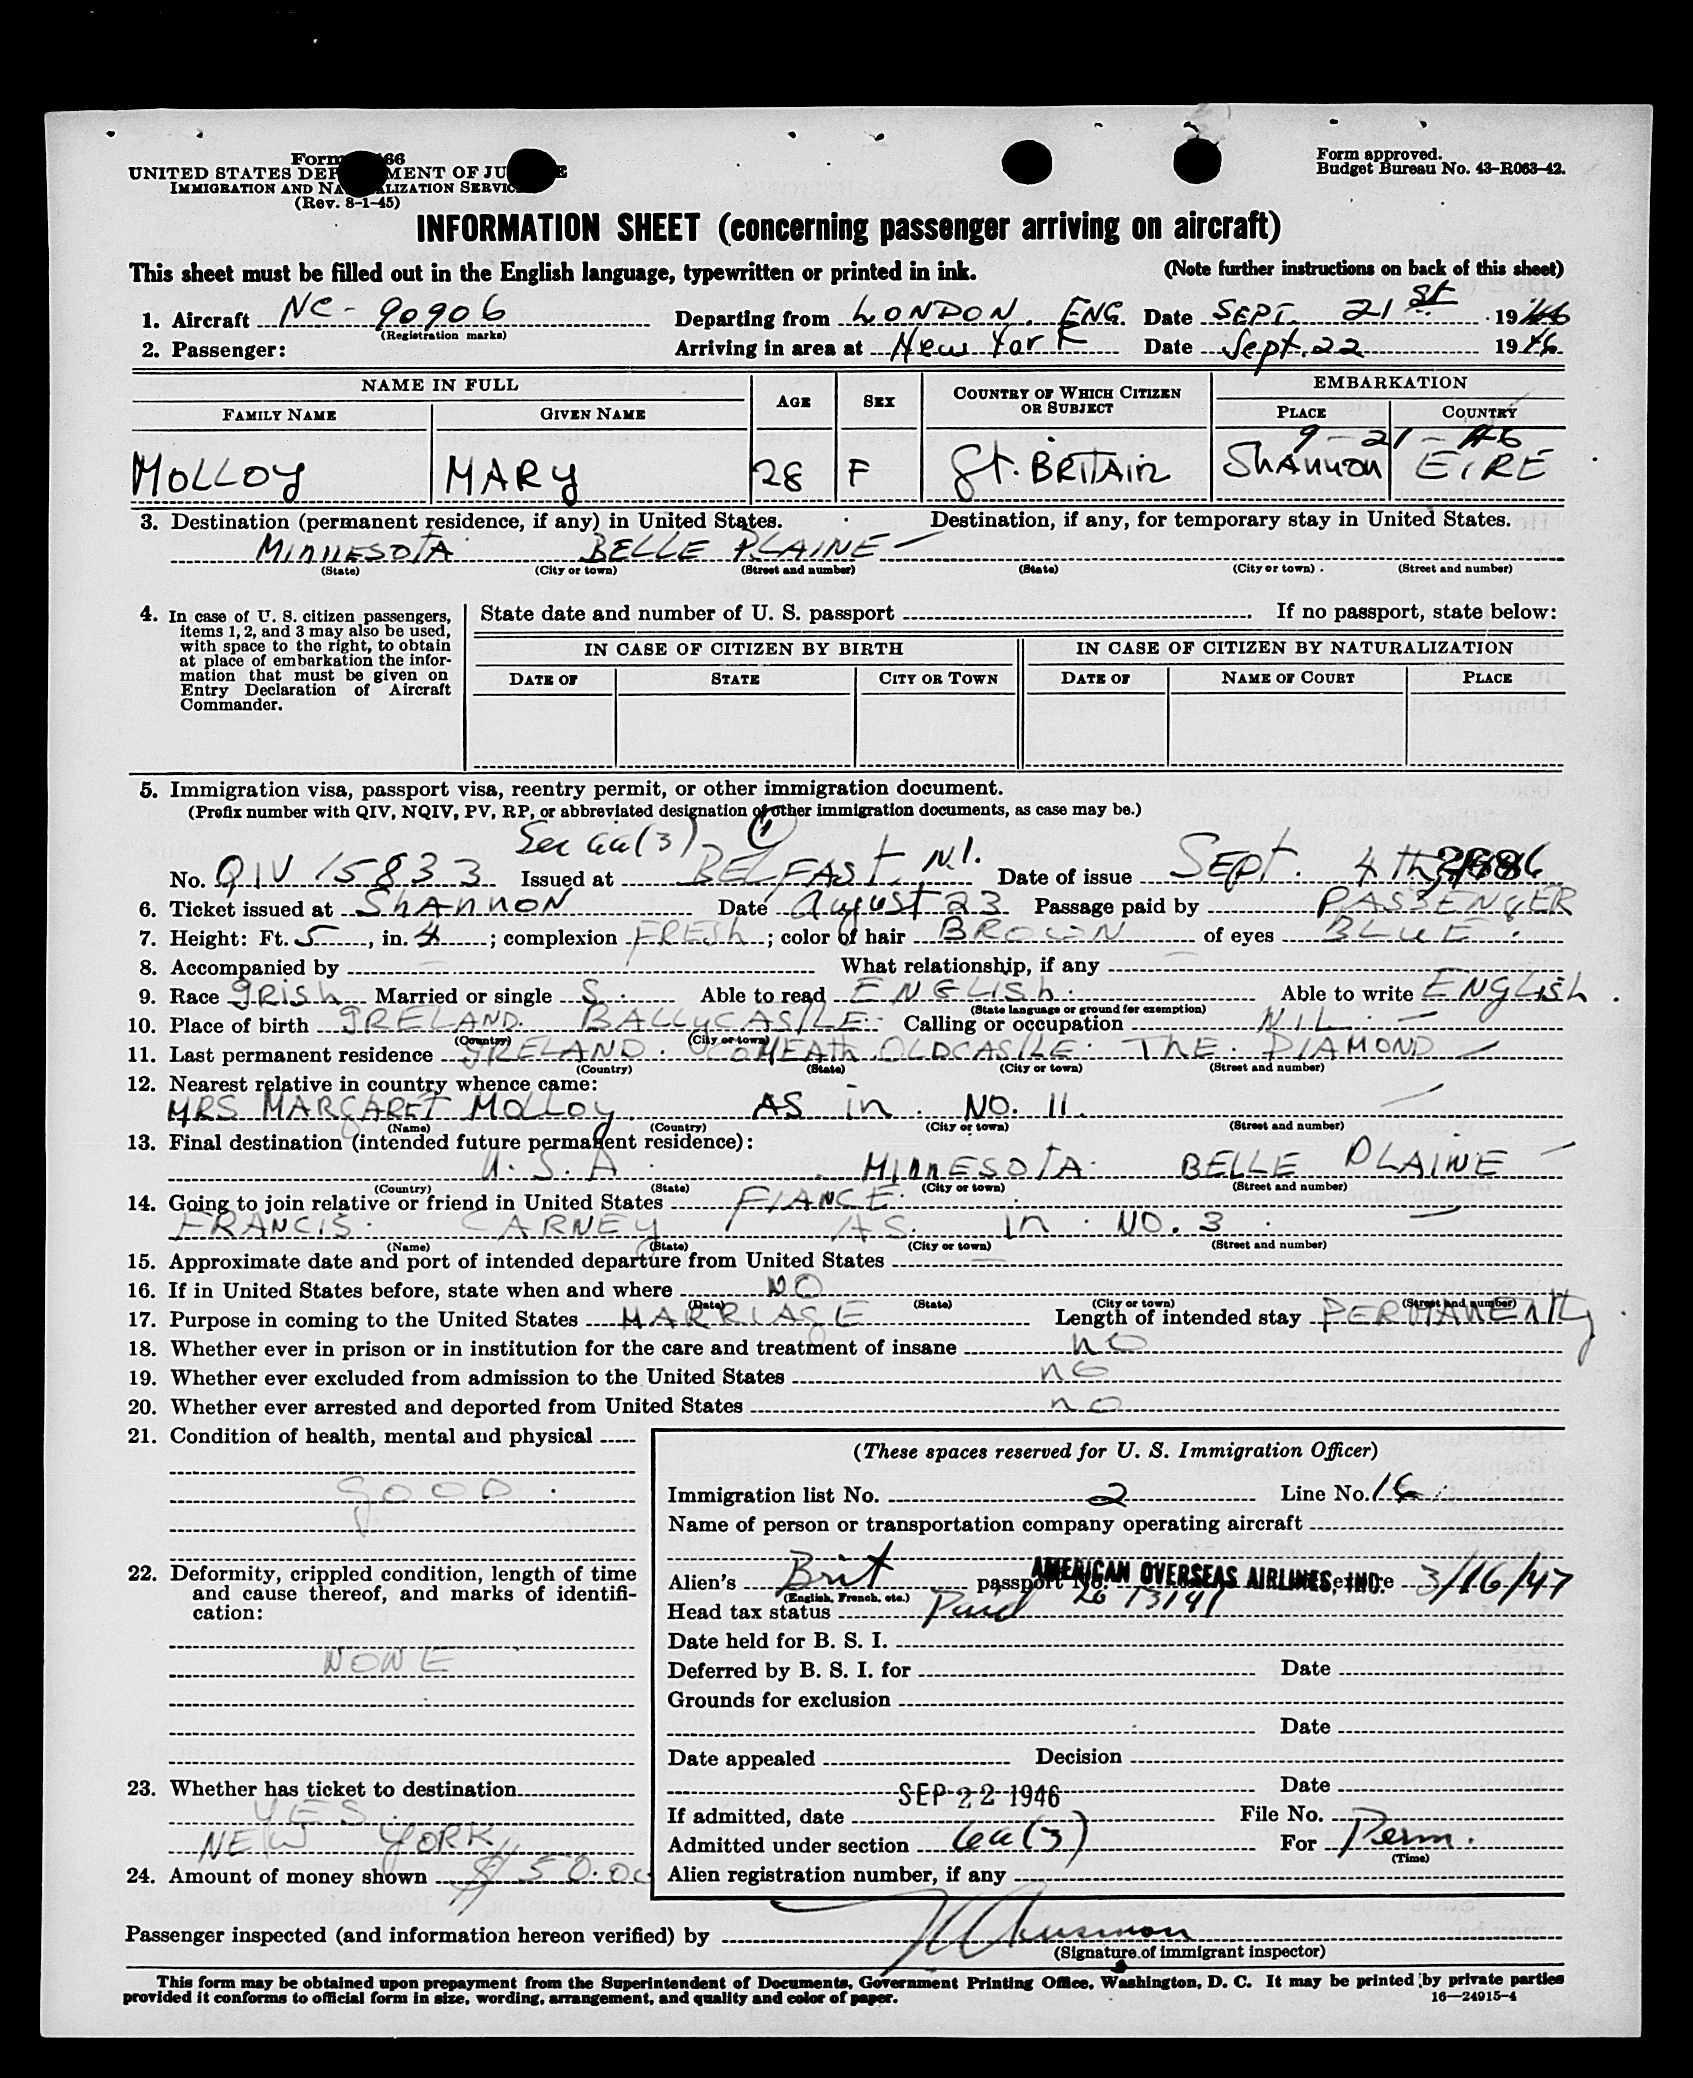 Form 66
UNITED STATES DEP MENT OF JU E
IMMIGRATION AND NA LIZATION SERVIC
(Rev. 8-1-45)
Form approved.
Budget Bureau No. 43-R063-42.
INFORMATION SHEET (concerning passenger arriving on aircraft)
This sheet must be filled out in the English language, typewritten or printed in ink. (Note further instructions on back of this sheet)
1. Aircraft NC-90906 Departing from LONDON. ENG. Date SEPT. 21st 1946
(Registration marks)
2. Passenger: Arriving in area at New York Date Sept. 22 1946
NAME IN FULL AGE SEX COUNTRY OF WHICH CITIZEN OR SUBJECT EMBARKATION
FAMILY NAME GIVEN NAME PLACE COUNTRY
9-21-46
MOLLOY MARY 28 F Gt. BRITAIN SHANNON EIRE
3. Destination (permanent residence, if any) in United States. Destination, if any, for temporary stay in United States.
MINNESOTA BELLE PLAINE —
(State) (City or town) (Street and number) (State) (City or town) (Street and number)
4. In case of U. S. citizen passengers, items 1, 2, and 3 may also be used, with space to the right, to obtain at place of embarkation the information that must be given on Entry Declaration of Aircraft Commander.
State date and number of U. S. passport If no passport, state below:
IN CASE OF CITIZEN BY BIRTH IN CASE OF CITIZEN BY NATURALIZATION
DATE OF STATE CITY OR TOWN DATE OF NAME OF COURT PLACE
5. Immigration visa, passport visa, reentry permit, or other immigration document.
(Prefix number with QIV, NQIV, PV, RP, or abbreviated designation of other immigration documents, as case may be.)
Sec 6a(3)
No. QIV 15833 Issued at BELFAST. N.I. Date of issue SEPT. 4th
6. Ticket issued at SHANNON Date August 23 Passage paid by PASSENGER
7. Height: Ft. 5, in. 4; complexion FRESH; color of hair BROWN of eyes BLUE.
8. Accompanied by — What relationship, if any —
9. Race IRISH Married or single S. Able to read ENGLISH. Able to write ENGLISH.
(State language or ground for exemption)
10. Place of birth IRELAND. BALLYCASTLE. Calling or occupation NIL. —
(Country) (City or town)
11. Last permanent residence IRELAND. CO MEATH OLDCASTLE. THE. DIAMOND —
(Country) (State) (City or town) (Street and number)
12. Nearest relative in country whence came:
MRS MARGARET MOLLOY AS in. NO. 11. —
(Name) (Country) (City or town) (Street and number)
13. Final destination (intended future permanent residence):
U.S.A. MINNESOTA. BELLE PLAINE —
(Country) (State) (City or town) (Street and number)
14. Going to join relative or friend in United States FIANCE.
FRANCIS. CARNEY AS. in. NO. 3. —
(Name) (State) (City or town) (Street and number)
15. Approximate date and port of intended departure from United States —
16. If in United States before, state when and where NO
(Date) (State) (City or town) (Street and number)
17. Purpose in coming to the United States MARRIAGE Length of intended stay PERMANENTLY
18. Whether ever in prison or in institution for the care and treatment of insane no
19. Whether ever excluded from admission to the United States no
20. Whether ever arrested and deported from United States no
21. Condition of health, mental and physical
GOOD.
22. Deformity, crippled condition, length of time and cause thereof, and marks of identification:
NONE
23. Whether has ticket to destination
YES.
NEW YORK
24. Amount of money shown $ 50.00
(These spaces reserved for U. S. Immigration Officer)
Immigration list No. 2 Line No. 16
Name of person or transportation company operating aircraft
AMERICAN OVERSEAS AIRLINES, INC.
Alien's Brit passport No. 2613141 3/16/47
(English, French, etc.)
Head tax status Paid
Date held for B. S. I.
Deferred by B. S. I. for Date
Grounds for exclusion
Date
Date appealed Decision
SEP 22 1946 Date
If admitted, date File No.
Admitted under section 6a(3) For Perm.
(Time)
Alien registration number, if any
Passenger inspected (and information hereon verified) by
(Signature of immigrant inspector)
This form may be obtained upon prepayment from the Superintendent of Documents, Government Printing Office, Washington, D. C. It may be printed by private parties
provided it conforms to official form in size, wording, arrangement, and quality and color of paper. 16—24915-4